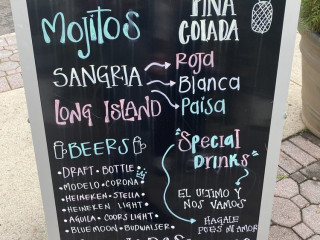 Mojitos
PIÑA
COLADA
SANGRIA
Roja
Blanca
Paisa
LONG ISLAND
BEERS
• DRAFT • BOTTLE •
• MODELO • CORONA •
• HEINEKEN • STELLA •
• HEINEKEN LIGHT •
• AGUILA • COORS LIGHT •
• BLUE MOON • BUDWEISER •
"Special
Drinks"
EL ULTIMO Y
NOS VAMOS
HAGALE
PUES MI AMOR